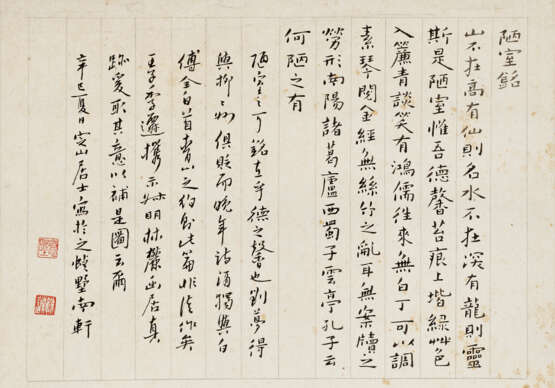 陋室銘
山不在高有仙則名水不在深有龍則靈
斯是陋室惟吾德馨苔痕上堦綠艸色
入簾青談笑有鴻儒往來無白丁可以調
素琴閱金經無絲竹之亂耳無案牘之
勞形南陽諸葛廬西蜀子雲亭孔子云
何陋之有
陋室之可銘在乎德之馨也劉夢得
與柳柳州俱貶而晚年詩酒獨與白
傅全白首青山之約則此篇非
王子雪遷攜示林麓幽居真
跡愛取其意以補是圖云爾
辛巳夏日定山居士寫於之墅南軒